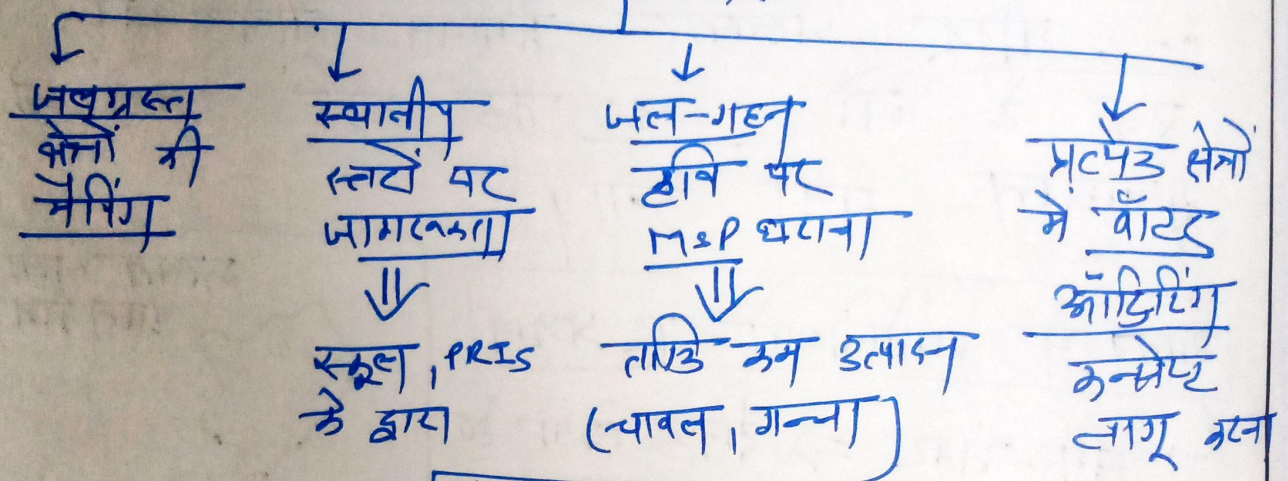 जलग्रस्त
क्षेत्रों की
मैपिंग
स्थानीय
स्तरों पर
जागरूकता
स्कूल, PRIs
के द्वारा
जल-गहन
कृषि पर
MSP घटाना
ताकि कम उत्पादन
(चावल, गन्ना)
प्रत्येक क्षेत्रों
में वॉटर
ऑडिटिंग
कन्सेप्ट
लागू करना